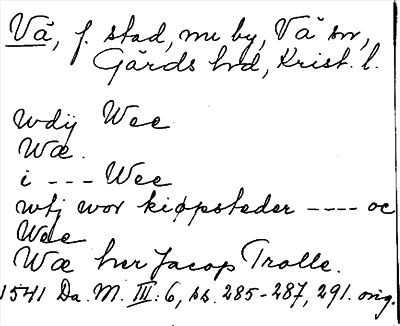 Vä, f. stad, nu by, Vä sn,
Gärds hd, Krist. l.
wdij Wee
Wæ.
i --- Wee
wtj wor kiøpsteder ---- oc
Wee
Wæ her Jacop Trolle.
1541 Da. M. III: 6, ss. 285-287, 291. orig.